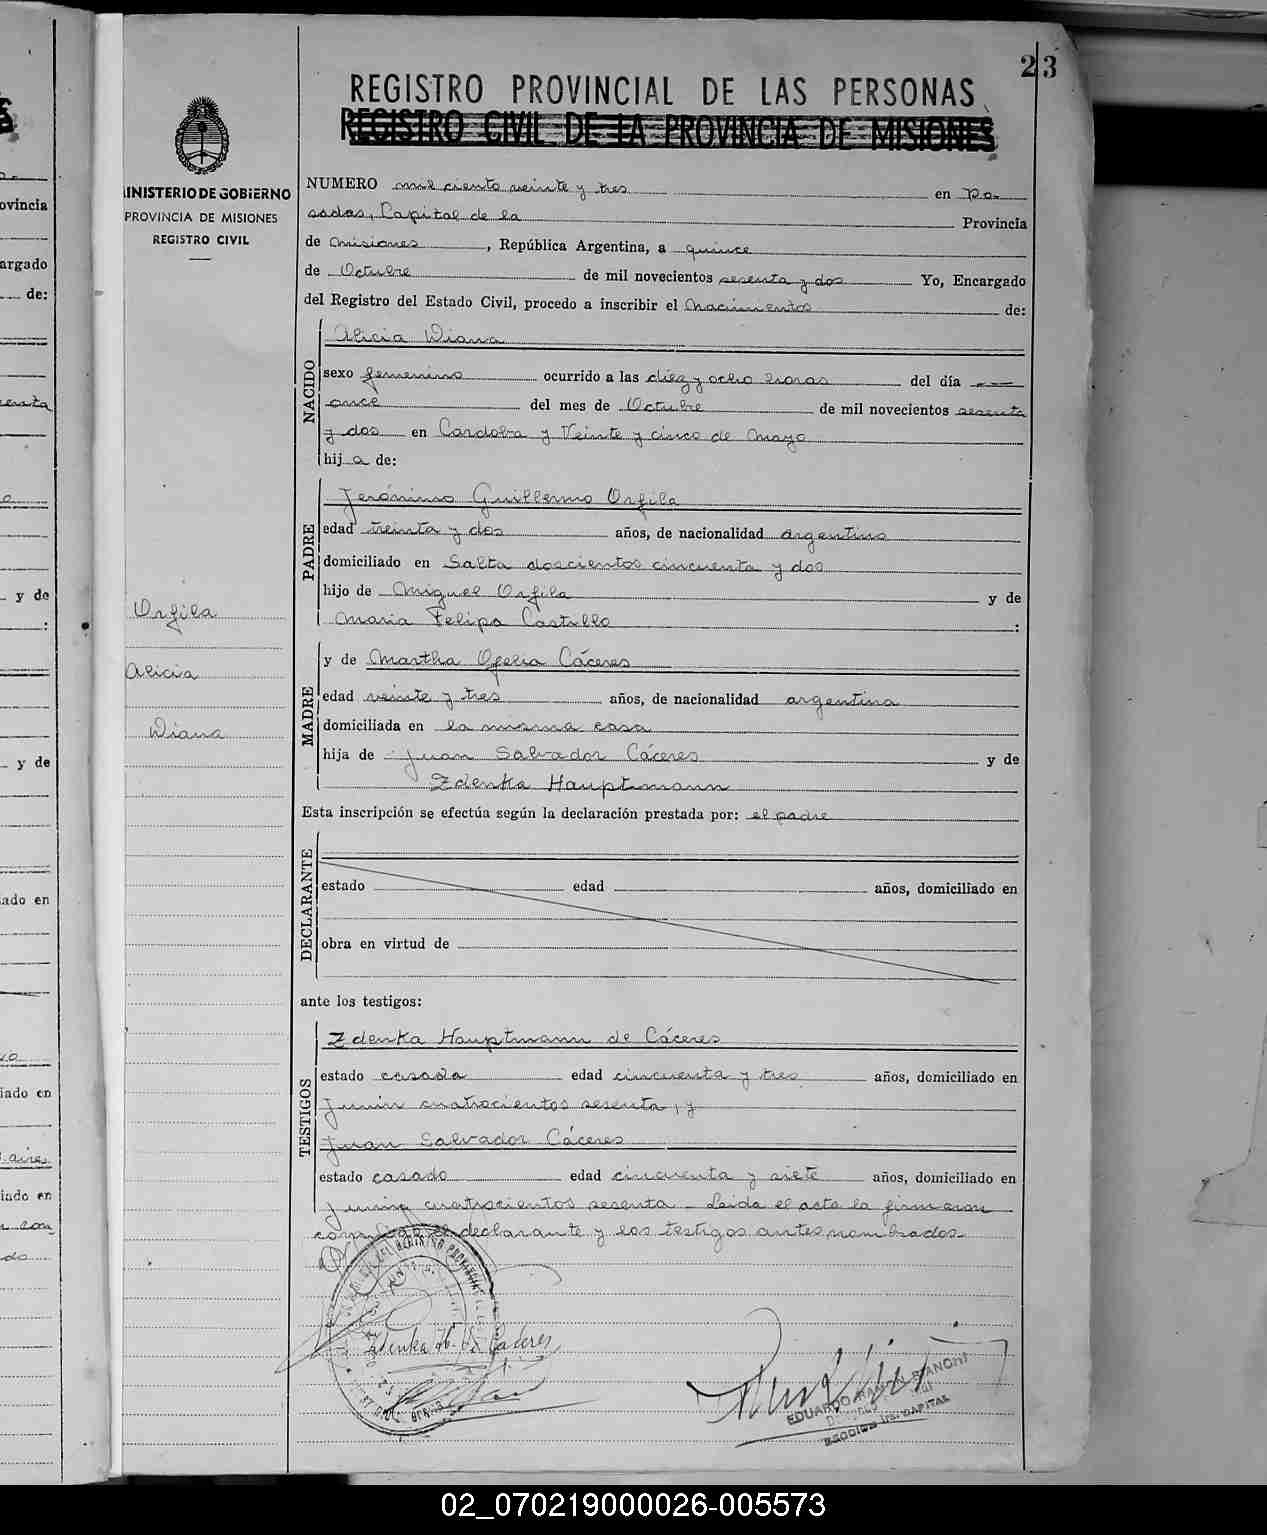 23
REGISTRO PROVINCIAL DE LAS PERSONAS
REGISTRO CIVIL DE LA PROVINCIA DE MISIONES
MINISTERIO DE GOBIERNO
PROVINCIA DE MISIONES
REGISTRO CIVIL
NUMERO mil ciento veinte y tres en Po-
sadas, Capital de la Provincia
de Misiones, República Argentina, a quince
de Octubre de mil novecientos sesenta y dos Yo, Encargado
del Registro del Estado Civil, procedo a inscribir el Nacimientos de:
NACIDO
Alicia Diana
sexo femenino ocurrido a las diez y ocho horas del día
once del mes de Octubre de mil novecientos sesenta
y dos en Cordoba y Veinte y cinco de Mayo
hij a de:
PADRE
Jerónimo Guillermo Orfila
edad treinta y dos años, de nacionalidad argentino
domiciliado en Salta doscientos cincuenta y dos
hijo de Miguel Orfila y de
Maria Felipa Castillo :
MADRE
y de Martha Ofelia Cáceres
edad veinte y tres años, de nacionalidad argentina
domiciliada en la misma casa
hija de Juan Salvador Cáceres y de
Zdenka Hauptmann
Orfila
Alicia
Diana
Esta inscripción se efectúa según la declaración prestada por: el padre
DECLARANTE
estado edad años, domiciliado en
obra en virtud de
ante los testigos:
TESTIGOS
Zdenka Hauptmann de Cáceres
estado casada edad cincuenta y tres años, domiciliado en
Junin cuatrocientos sesenta, y
Juan Salvador Cáceres
estado casado edad cincuenta y siete años, domiciliado en
Junin cuatrocientos sesenta - Leida el acta la firmaron
conmigo el declarante y los testigos antes nombrados
Zdenka H. de Cáceres
EDUARDO RAMON BIANCHI
CAPITAL
ovincia
argado
de:
y de
:
y de
ado en
iado en
iado en
02_070219000026-005573